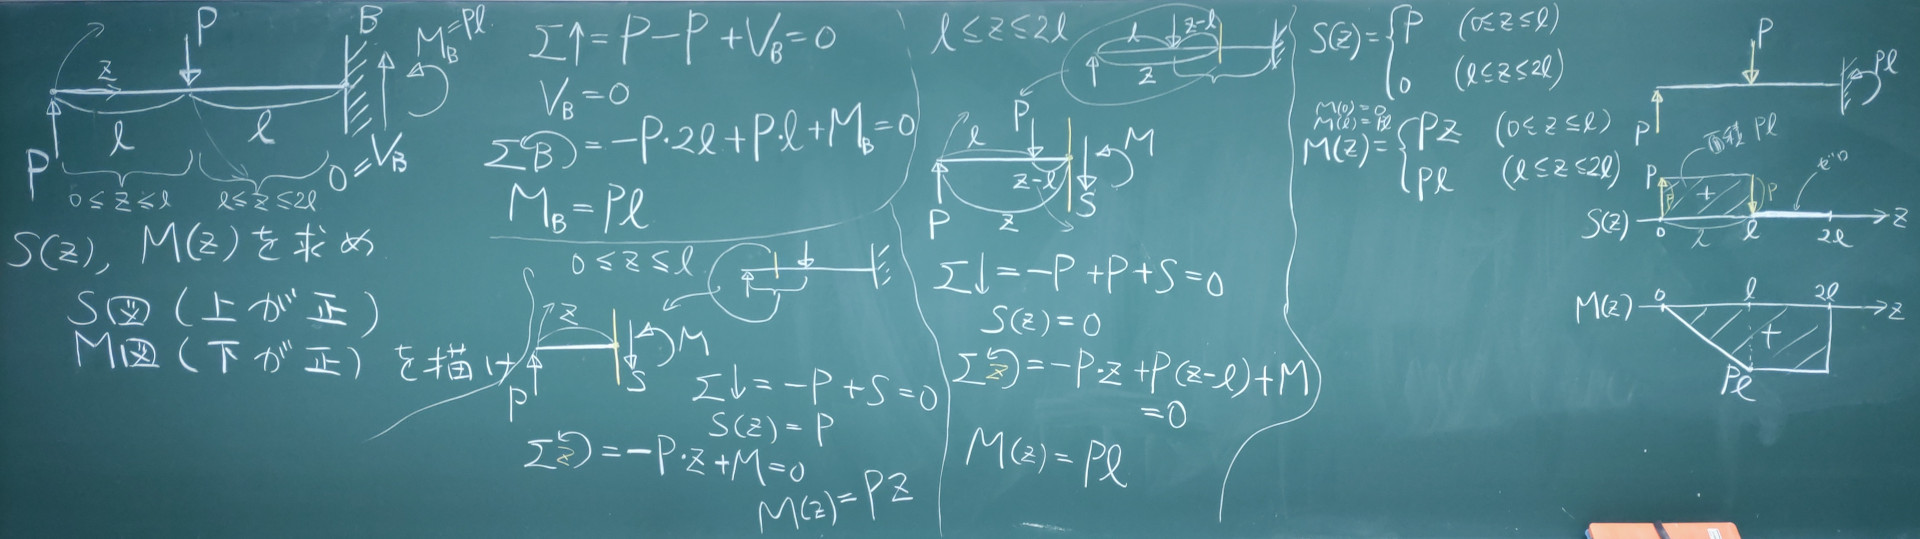 P
B
M_B=Pl
z
l
l
P
0≤z≤l
l≤z≤2l
0=V_B
S(z), M(z)を求め
S図(上が正)
M図(下が正)を描け
Σ↑=P-P+V_B=0
V_B=0
ΣB)=-P・2l+P・l+M_B=0
M_B=Pl
0≤z≤l
z
M
S
P
Σ↓=-P+S=0
S(z)=P
Σz)=-P・z+M=0
M(z)=Pz
l≤z≤2l
l
z-l
z
P
l
M
z-l
S
P
z
Σ↓=-P+P+S=0
S(z)=0
Σz)=-P・z+P(z-l)+M
=0
M(z)=Pl
S(z)={P (0≤z≤l)
0 (l≤z≤2l)
M(0)=0
M(l)=Pl
M(z)={Pz (0≤z≤l)
Pl (l≤z≤2l)
P
Pl
P
面積 Pl
P
P
+
P
ぜロ
S(z)
0
l
l
2l
z
M(z)
0
l
2l
z
+
Pl